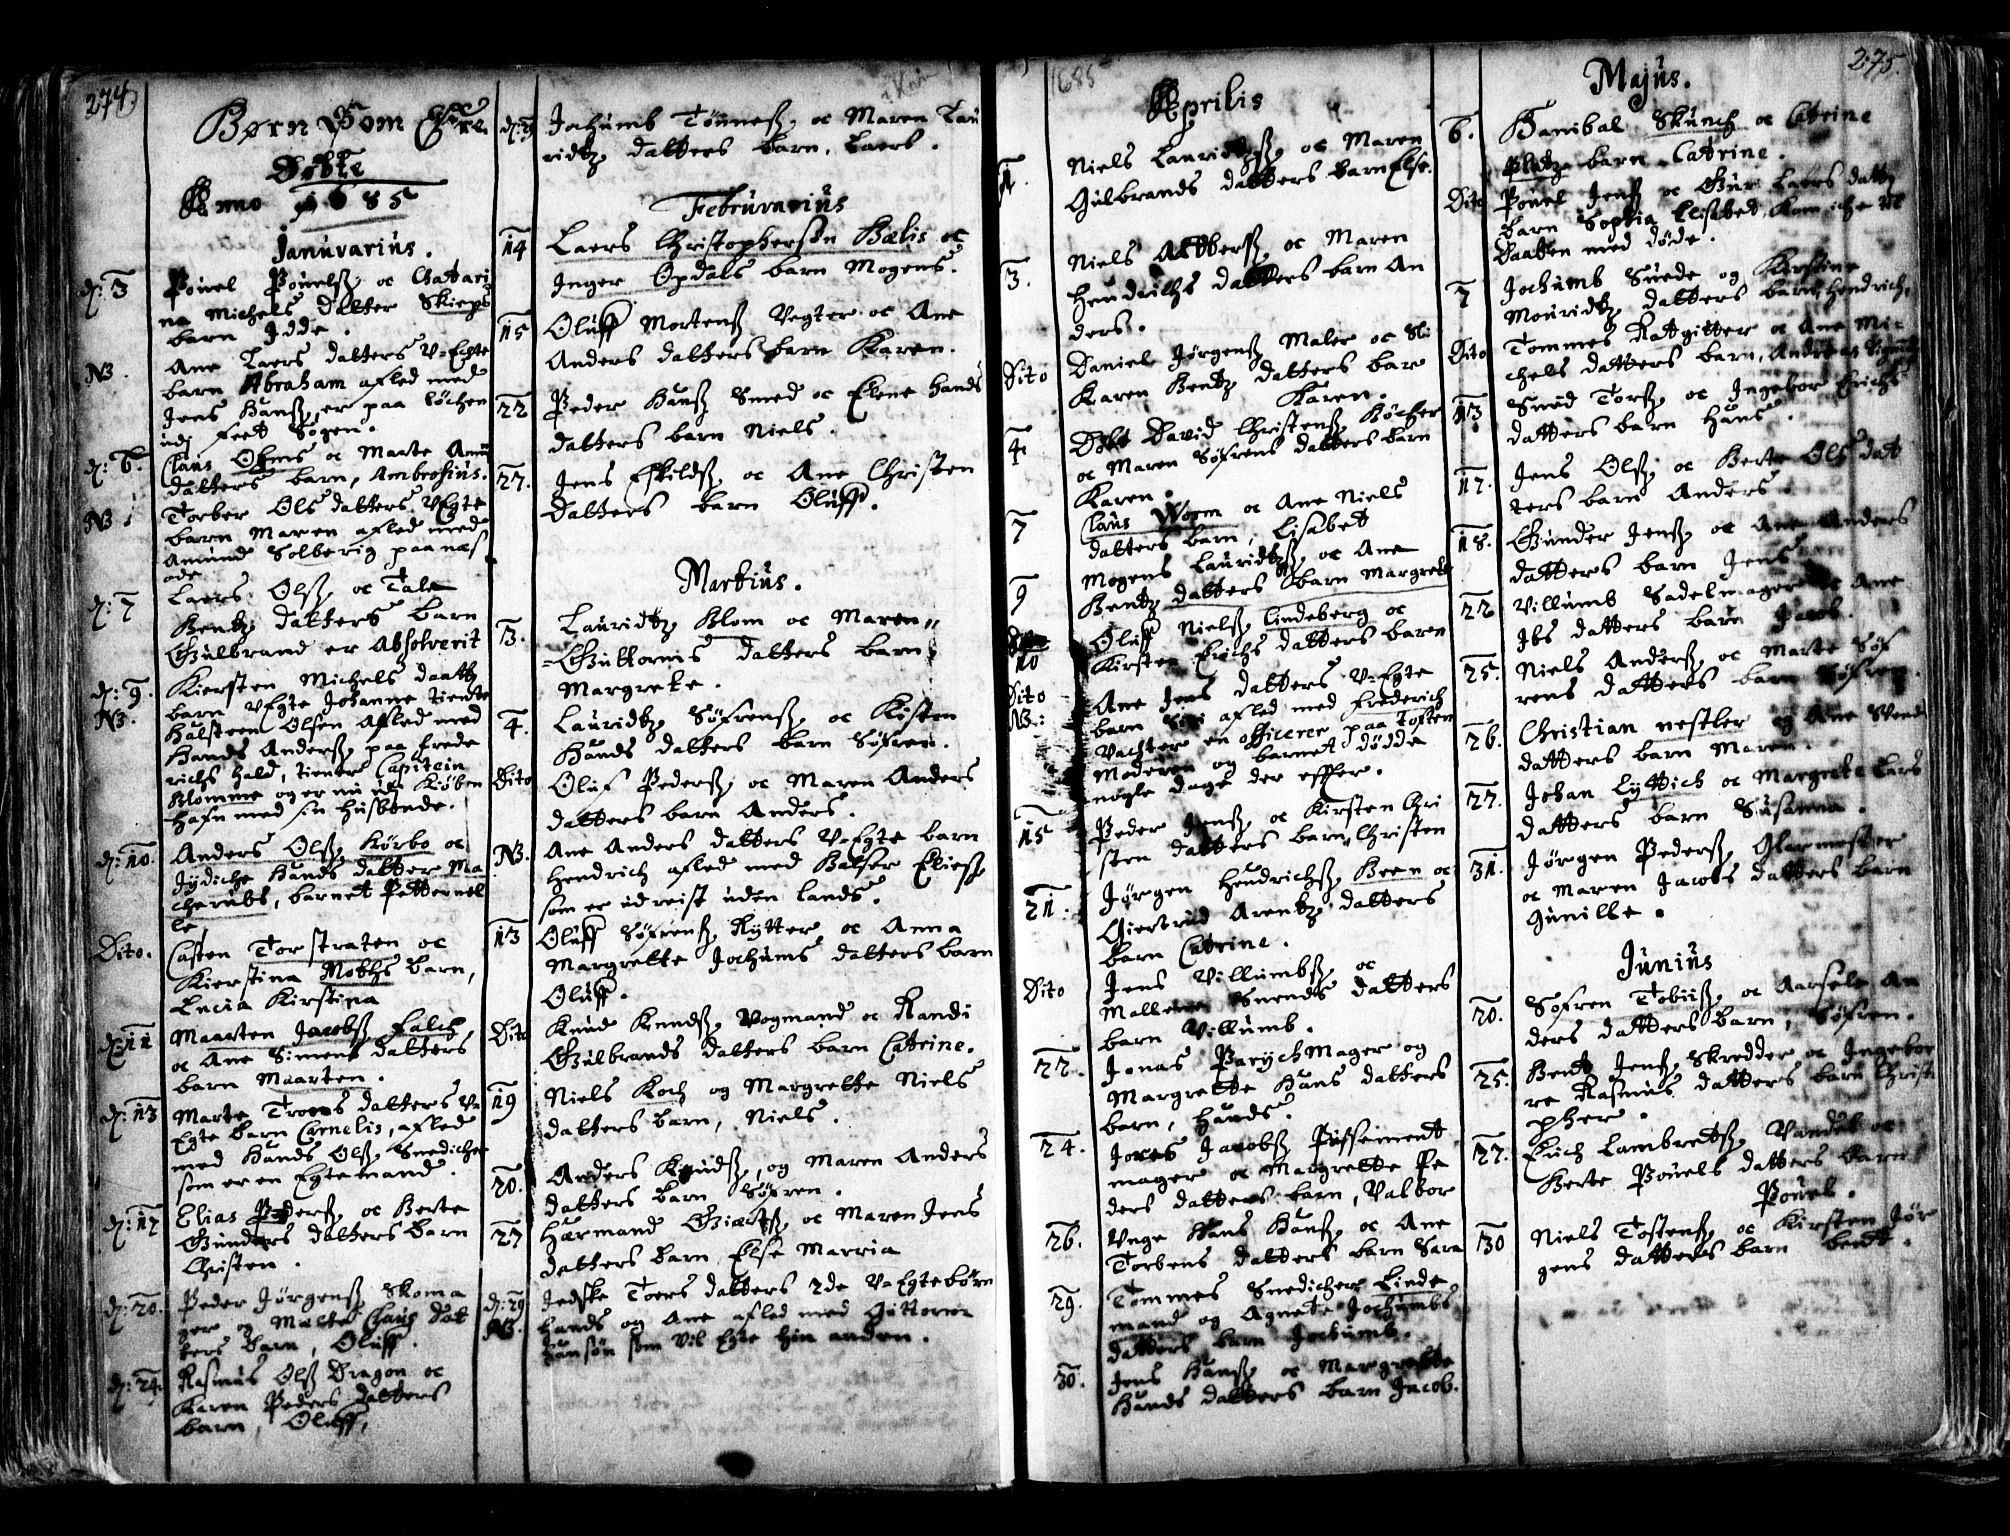 274.
Børn Som Ere
Døbte
Anno 1685
Januvarius.
d: 3 Pouel Pouelsß, oc Cattari
na Michels datter Skieps
barn Idde.
N3. Ane Laers datters V-Echte
barn Abraham afled med
Jens Hansß, er paa Løchen
udj Feet Sogen.
d: 6. Claus Ohms oc Maate Amu
datters barn, Ambrosius.
N3. Torber Ols datters VEgte
barn Maren afled med
Amund Solberig paa nes
ode
d: 7 Laers Olsß, oc Tale
Bentz datters barn
Gulbrand er Absolverit
d: 9. Kiersten Michels daatt
N3. barn VEgte Johanne tiente
Halsteen Olsen Afled med
Hands Andersß, paa Frede
richs hald, tiente Capitein
Blomme og er nu udj Kiøben
hafn med sin Husbonde.
d: 10. Anders Olsß, Kørbo oc
Jydiche Hands datter Ma
cherubs, barnet Petternel
le
Dito. Casten Torstraten oc
Kierstina Moths barn,
Lucia Kirstina
d: 11 Maarten Jacobsß Falch,
oc Ane Simens datters
barn Maarten.
d: 13 Marte Troens datters V-
Egte barn Cornelis, afled
med Hands Olsß, Snedicher
som er en Egtemand.
d: 17 Elias Pedersß, oc Berte
Gunders datters barn
Christen.
d: 20. Peder Jørgensß Skoma
ger og Malte Claus dat
ters barn, Oluff.
d: 24. Rasmus Olsß Dragon oc
Karen Peders datters
barn, Oluff,
Jochumb Tønnesß, oc Maren Lau
ridtz datters barn, Laers.
Februvarius
14 Laers Christophersøn Bælis oc
Inger Opdals barn Mogens.
15 Oluff Mortensß Vegter oc Ane
Anders datters barn Karen.
22 Peder Hansß Smed oc Elene Hands
datters barn Niels.
27. Jens Eskildsß, oc Ane Christen
datters barn Oluff.
Martius.
3. Lauridtz Blom oc Maren
Guttorms datters barn
Margrete.
4. Lauridtz Søfrensß, oc Kisten
Hands datters barn Søfren.
Dito Oluf Pedersß, oc Maren Anders
datters barn Anders.
N3. Ane Anders datters V-Egte barn
Hendrich afled med Balser Eliesß,
som er udreist uden lands.
13 Oluff Søfrensß, Rytter oc Anna
Margrette Jochums datters barn
Oluff.
Dito Knud Knudsß, Vogmand oc Randi
Gulbrands datters barn Catrine.
19 Niels Koch og Margrette Niels
datters barn, Niels.
20. Anders Knudsß, og Maren Anders
datters barn Søfren.
27 Harmand Giertsß, oc Maren Jens
datters barn Else Marria
d: 29 Jedske Toers datters 2de V-Egte børn
N3. Hands og Ane afled med Guttorm
Hansøn som vil Egte hin anden.
1685
Aprilis
1. Niels Lauridtzsß, oc Maren
Gulbrands datters barn Else.
3. Niels Albersß, oc Maren
Hendrichs datters barn An
ders.
Dito Daniel Jørgensß Maler oc Sl:
Karen Bentz datters bar
Karen.
4 Døbt David Christensß, Bøcher
oc Maren Søfrens datters barn
Karen.
7 Claus Worm oc Ane Niels
datters barn, Lisabet
9 Mogens Lauridtzsß, oc Ane
Bentz datters barn Margrete
10 Oluff Nielsß, Lindeberg oc
Kirsten Erichs datters baren
Dito Ane Jens datters V-Egte
N3.: barn Siri afled med Frederich
Vachter en officerer paa Toften
Moderen og barnet dødde
nogle dage der effter.
15 Peder Jensß, oc Kirsten Chri
sten datters barn, Christen
21. Jørgen Hendrichsß, Been oc
Giertrud Arentz datters
barn Catrine.
Dito Jens Villumbsß, oc
Mallene Suends datters
barn Villumb.
22. Jonas Parychmager og
Margrette Hans datters
barn, Hands.
24. Jores Jacobsß Possement
mager oc Margrette Pe
ders datters barn, Valbor
26. Unge Hans Hansß, oc Ane
Torbens datters barn Sara
29. Tommes Snedicher Linde
mand og Agnete Jochumbs
datters barn Jochumb.
30. Jens Hansß, oc Margrette
Hands datters barn Jacob.
275.
Majus.
6. Hanibal Skunck oc Catrine
barn Catrine.
Dito Pouel Jensß oc Gur Laers datt
barn Sophia Elisabet kom icke til
Daaben med døde.
7 Jochumb Suede og Kirstine
Mouridtz datters barn, Hendrich,
Dito Tommes Ratgitter oc Ane Mi-
chels datters barn, Andreas
13 Suend Torsß, oc Ingebor Erichs
datters barn Hans.
17. Jens Olsß, oc Berte Ols dat
ters barn Anders.
18. Gunder Jensß, oc Ane Anders
datters barn Jens
22 Villumb Sadelmager oc Ane
Ibs datters barn Jacob.
25. Niels Andersß, oc Marte Søf
rens datters barn Søfren.
26. Christian Nestler og Ane Svend
datters barn Maren.
27. Johan Lyttich oc Margrete Lars
datters barn Susanna.
31. Jørgen Pedersß, Glarmester
oc Maren Jacobs datters barn
Gunille.
Junius
20. Søfren Tobiisß, oc Aarsele An
ders datters barn, Søfren.
25. Bent Jensß, Skredder oc Ingebor
re Rasmus datters barn Christ
pher.
27. Erich Lambretsß, Vandel oc
Berte Pouels datters barn
Pouel.
30 Niels Tostensß, oc Kirsten Jør
gens datters barn Bendt.